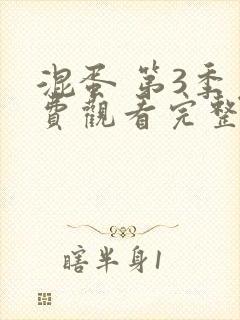 混蛋 第3季
費觀看完整
瞎半身1